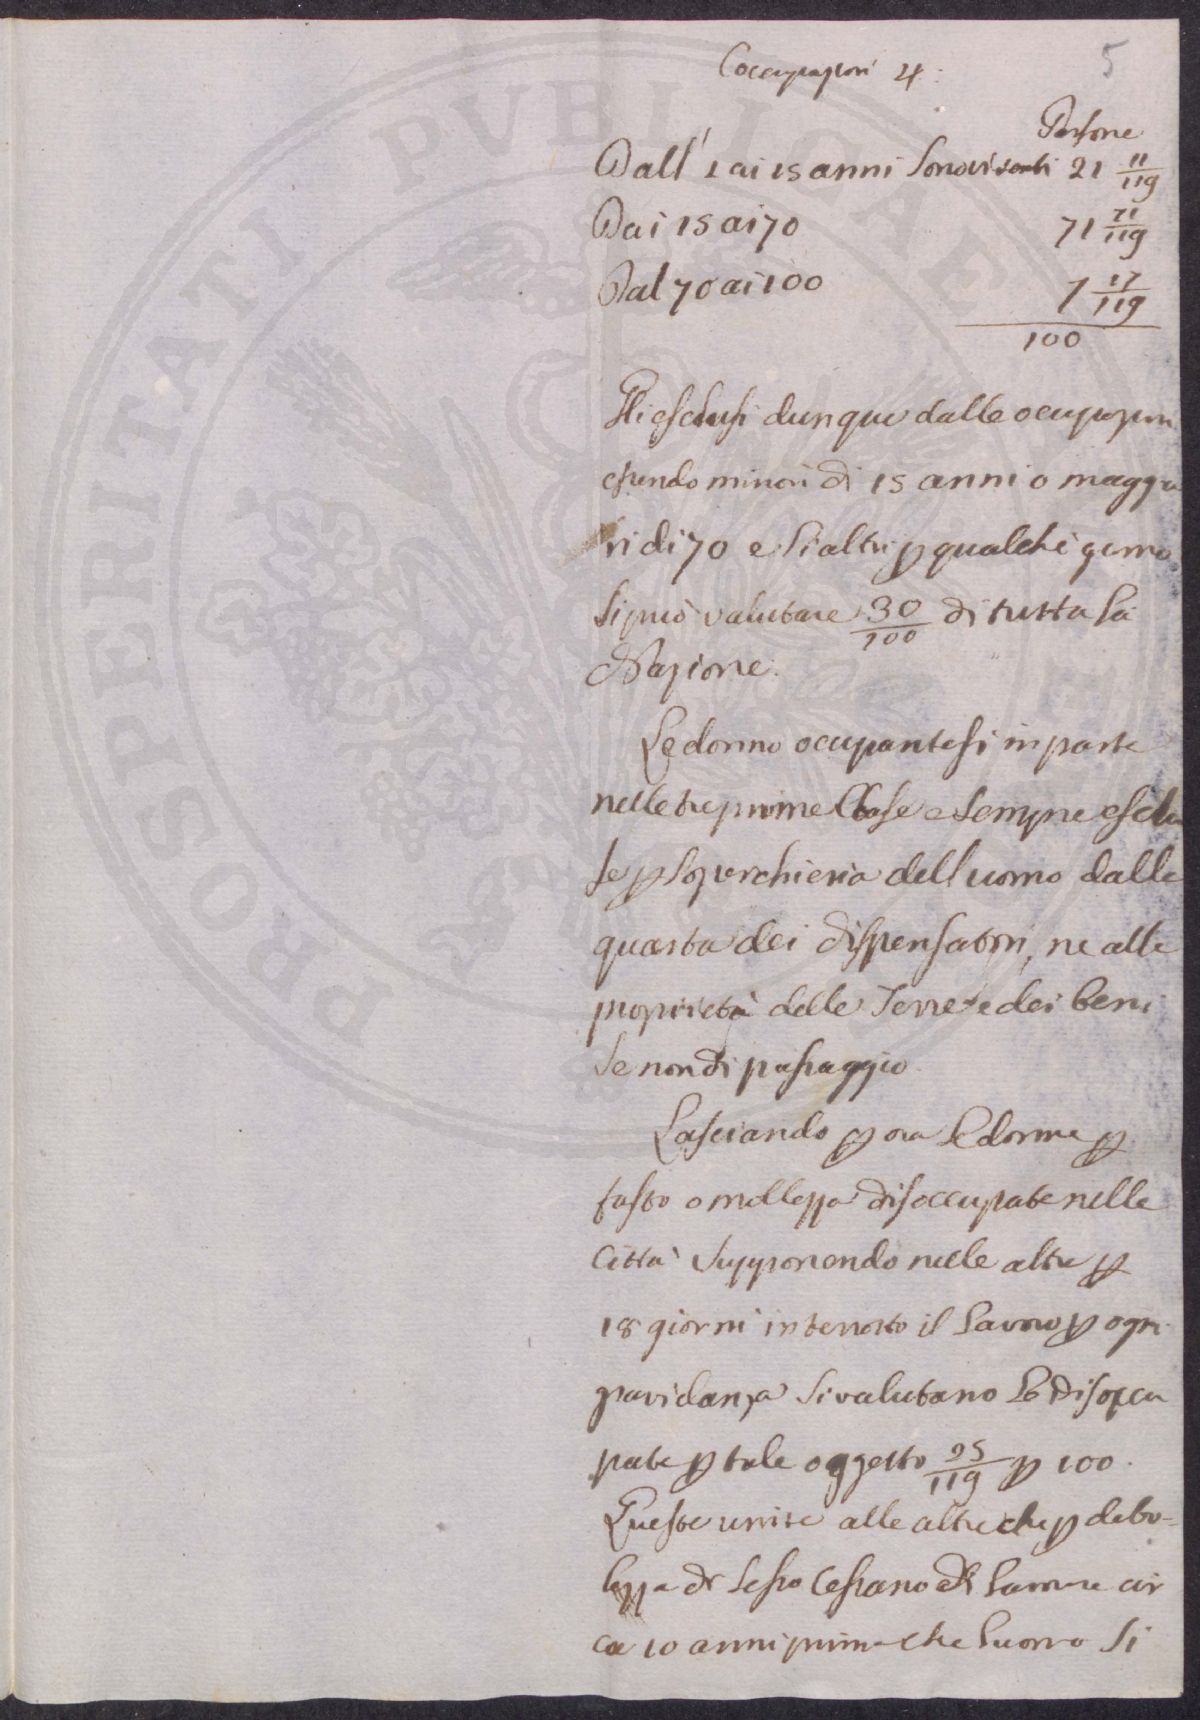 5
Occupazioni 4.
Persone
Dall' 1 ai 15 anni sono viventi 21 11/119
Dai 15 ai 70 71 71/119
Dal 70 ai 100 7 17/119
100
Gli esclusi dunque dalle ocupazioni
essendo minori di 15 anni o maggio
ri di 70 e li altri p qualche giorno
si può valutare 30/100 di tutta la
Nazione.
Le donne ocupantesi in parte
nelle tre prime Classe e sempre esclu
se p soperchieria dell uomo dalle
quarta dei dispensatori, ne alle
proprietà delle Terre e dei beni
se non di passaggio.
Lasciando p ora le donne p
fasto o mollezza disoccupate nelle
Città supponendo nelle altre p
18 giorni interrotto il lavoro p ogni
gravidanza si valutano le disoccu
pate p tale oggetto 25/119 p 100.
Queste unite alle altre che p debo-
lezza di sesso cessano di lavorare cir
ca 10 anni prima che l uomo si
PROSPERITATI PVBLICAE